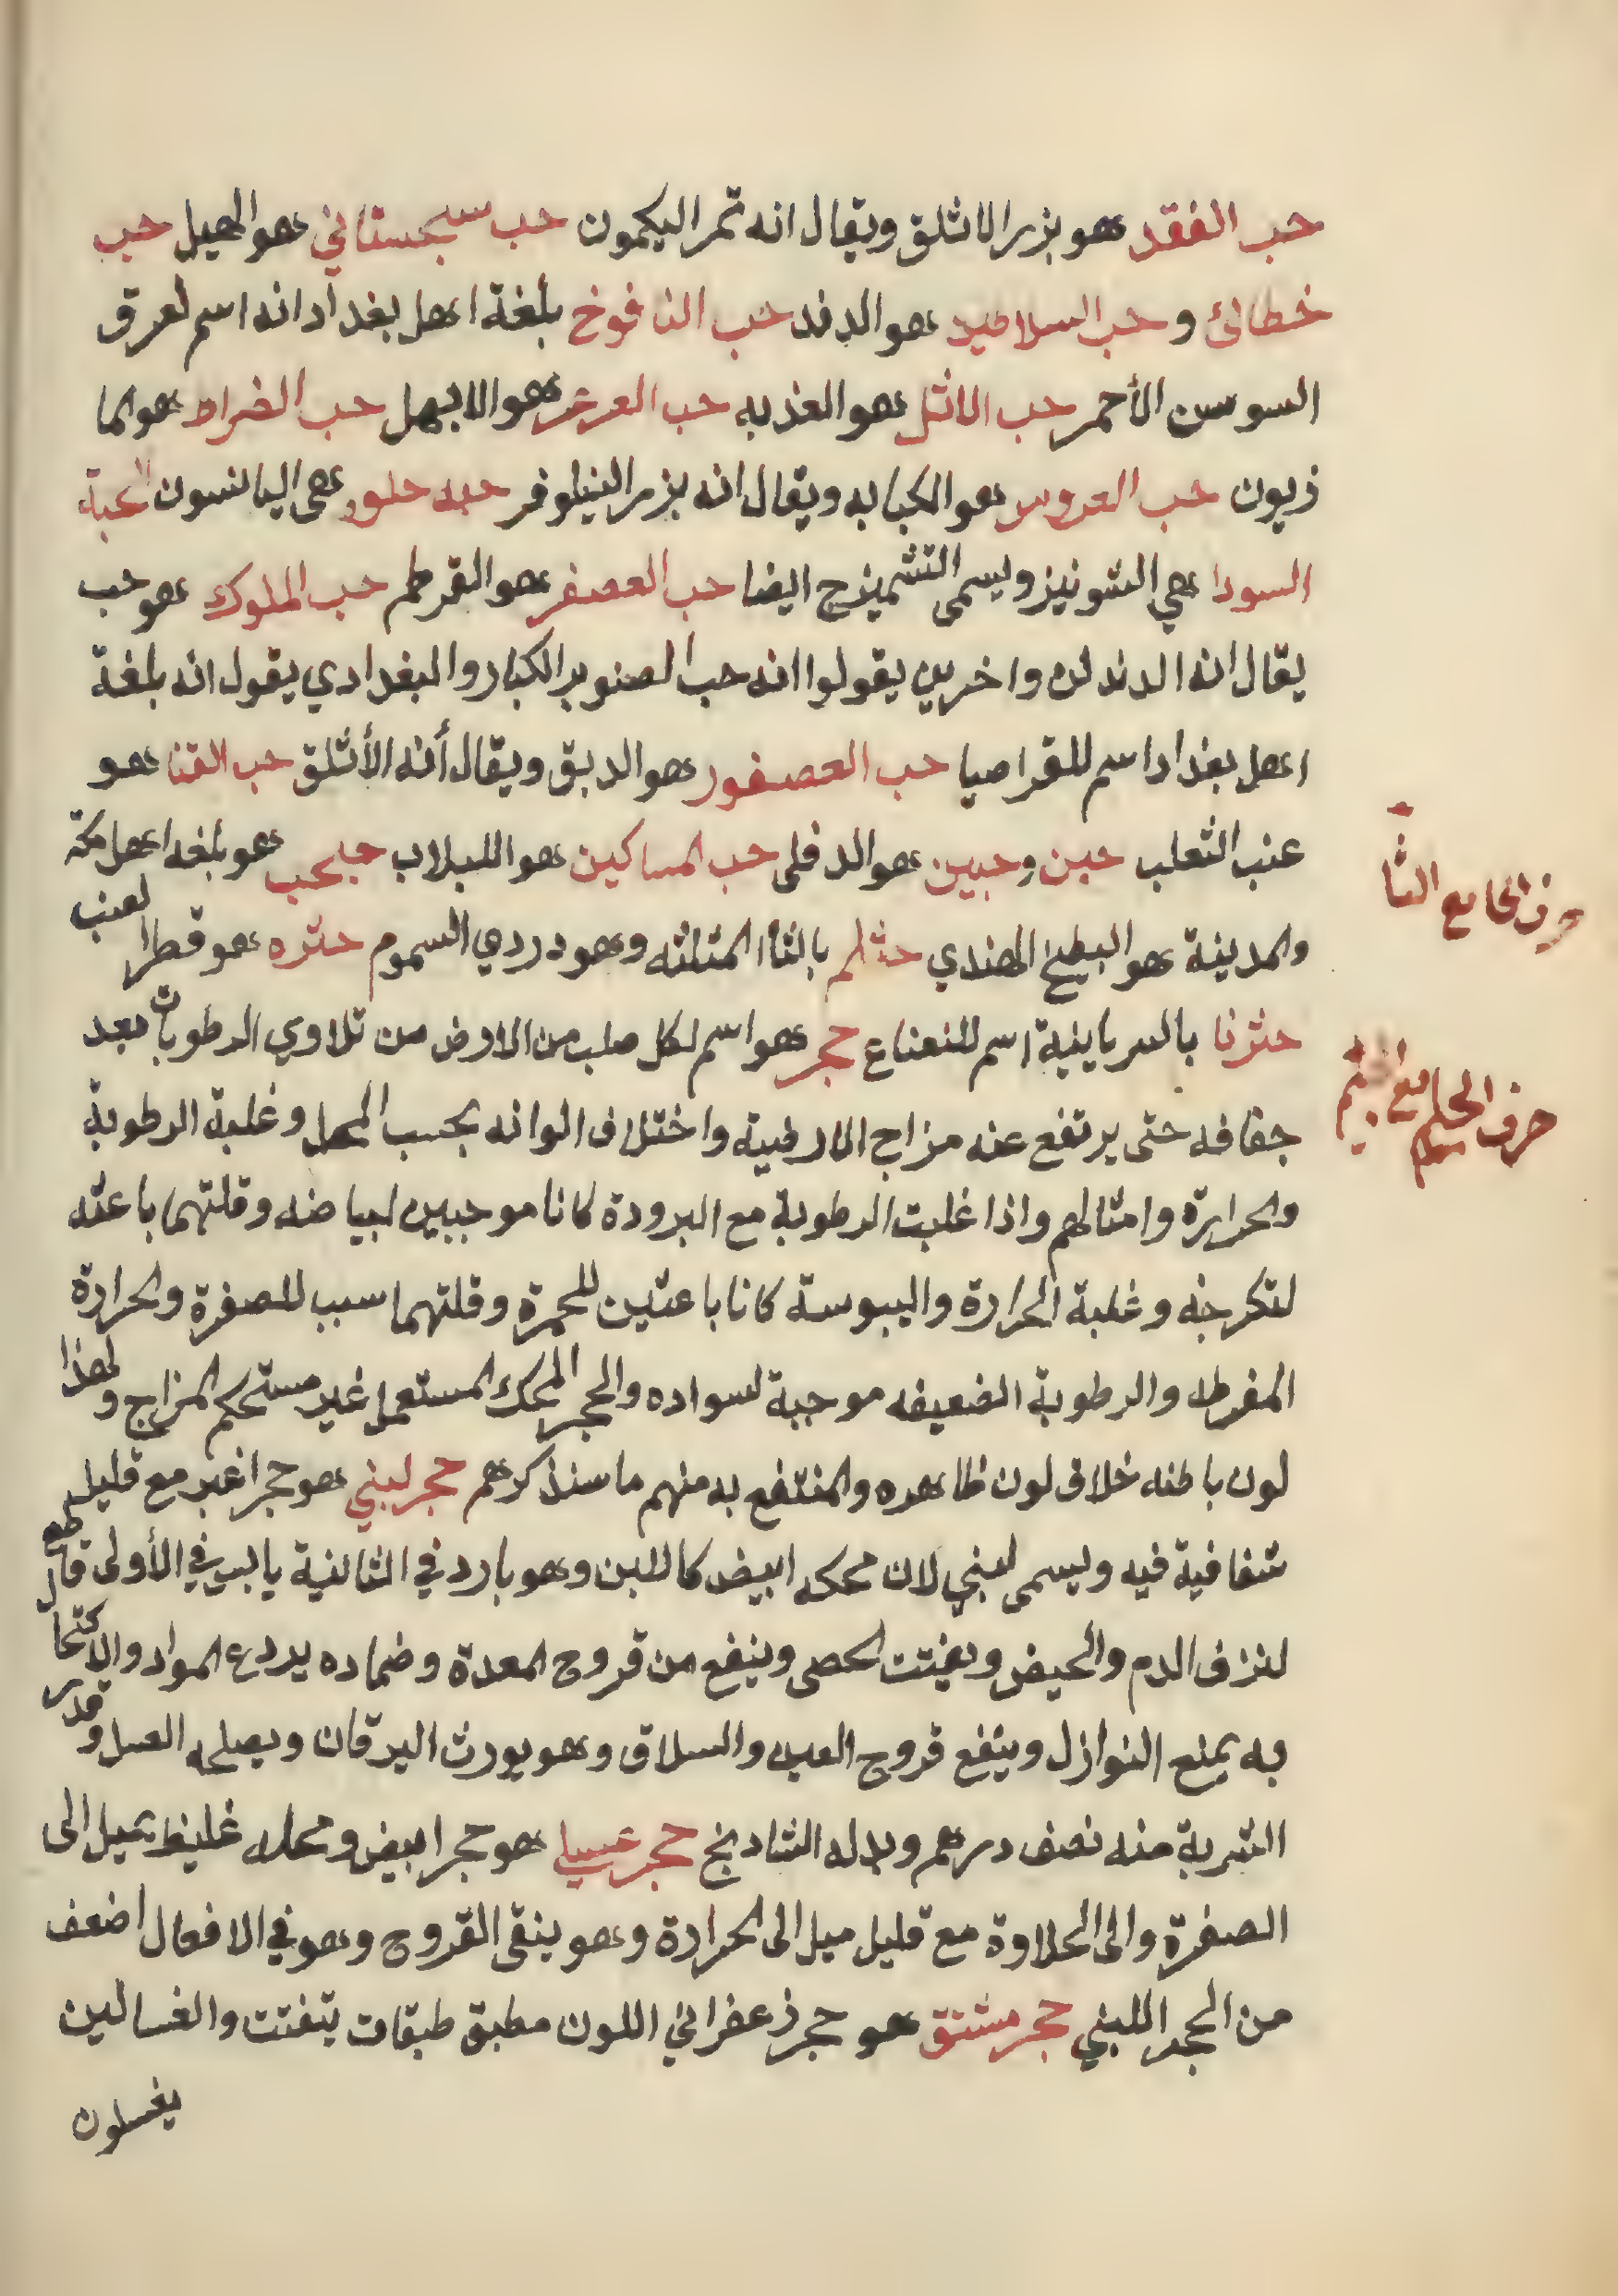 حب الفقد هو بزر الاثلق ويقال انه تمر اليكمون حب سجستاني هو الهيل حب
خطائ وحب السلاطين هو الدند حب النافوخ بلغة اهل بغداد انه اسم لعرق
السوسن الأحمر حب الاثل هو العذبه حب العرعر هو الابهل حب الضراط هو الما
زيون حب العروس هو الكبابه ويقال انه بزر النيلوفر حبه حلوه هي اليانسون الحبة
السودا هي الشونيز ويسمى التشميزج ايضا حب العصفر هو القرطم حب الملوك هو حب
يقال انه الدند لن واخرين يقولوا انه حب الصنوبر الكبار والبغدادي يقول انه بلغة
اهل بغداد اسم للقراصيا حب العصفور هو الدبق ويقال أنه الأثلق حب القنا هو
عنب الثعلب حبن وحبين هو الدفلى حب المساكين هو اللبلاب حبحب هو بلغه اهل مكة
حرف الحا مع الثا
والمدينة هو البطيخ الهندي حثلم بالثاا المثلثه وهو دردي السموم حثره هو قطرا لعنب
حثرنا بالسريانية اسم للنعناع حجر هو اسم لكل صلب من الارض من تلاوي الرطوبات بعد
حرف الحا مع الجيم
جفافه حتى يرتفع عنه مزاج الارضية واختلاف الوانه بحسب المحل وغلبة الرطوبة
والحرارة وامثالهم واذا غلبت الرطوبة مع البرودة كانا موجبين لبياضه وقلتهما باعثه
لتكرجنه وغلبة الحرارة واليبوسة كانا باعثين للحمرة وقلتهما سبب للصفرة والحرارة
المفرطه والرطوبة الضعيفه موجبة لسواده والحجر المحك المستعمل غير مستحكم المزاج ولهذا
لون باطنه خلاف لون ظاهره والمنتفع به منهم ما سنذكرهم حجر لبني هو حجر اغبر مع قليل
شفافية فيه ويسمى لبني لان محكه ابيض كاللبن وهو بارد في الثانية يابس في الأولى قاطع
لنزف الدم والحيض ويفتت الحصى وينفع من قروح المعدة وضماده يردع المواد والاكتحال
به يمنع النوازل وينفع قروح العين والسلاق وهو يورث اليرقان ويصلحه العسل وقدر
الشربة منه نصف درهم وبدله الشادنج حجر عسيلي هو حجر ابيض ومحكه غليظ يميل الى
الصفرة والى الحلاوة مع قليل ميل الى الحرارة وهو ينقى القروح وهو في الافعال اضعف
من الحجر اللبني حجر مشقق هو حجر زعفراني اللون مطبق طبقات يتفتت والغسالين
يغسلون